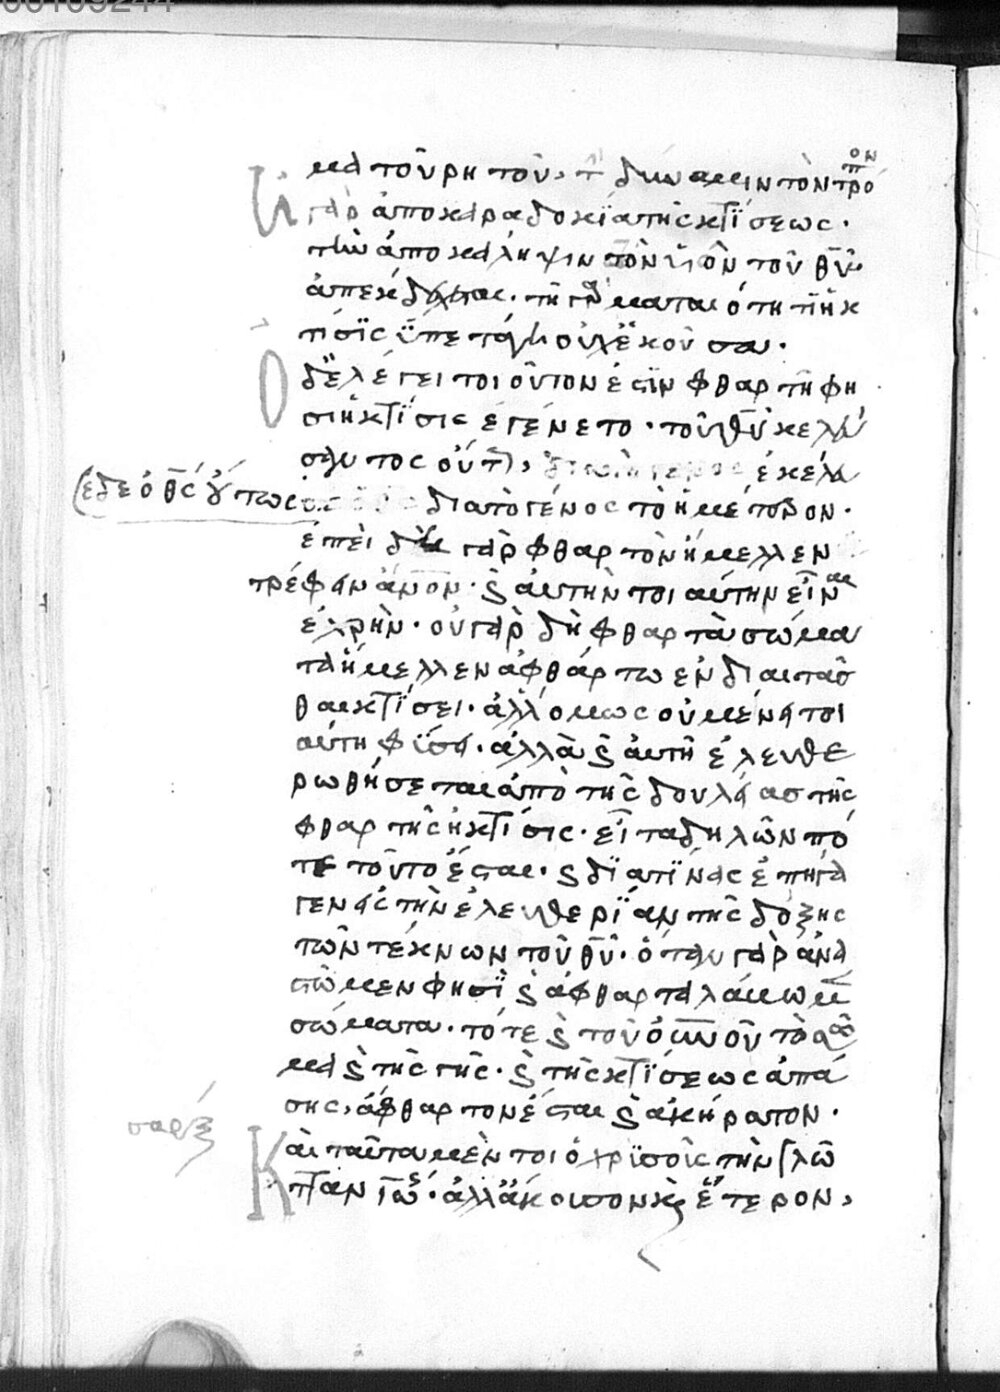 μα τοῦ ρητοῦ, τ δύναμιν τὸν τρόπον
Ἡ γὰρ ἀποκαραδοκία τῆς κτίσεως.
τὴν ἀποκάλυψιν τὸν υἱὸν τοῦ θυ.
ἀπεκδέχεται. τῇ γὰρ ματαιότητι ἡ κ
τίσις ὑπετάγη οὐχ ἑκοῦσα.
Ὁ δὲ λέγει τοιοῦτον ἐστὶν φθαρτὴ φη
σιν ἡ κτίσις ἐγένετο. τοῦ θυ κελεύ
σαντος οὕτω, ἐκέλευ
(εδε ὁ θς οὕτως διὰ τὸ γένος τὸ ἡμέτερον.
ἐπεὶ γὰρ φθαρτὸν ἤμελλεν
τρέφειν ἄνον. ς αὐτὴν τοιαύτην εἶναι
ἐχρῆν. οὐ γὰρ δὴ φθαρτὰ σώμα
τα ἤμελλεν ἀφθάρτω ἐνδιαιτᾶσ
θαι κτίσει. ἀλλ' ὅμως οὐ μένει τοι
αύτη φησί. ἀλλὰ ς αὐτὴ ἐλευθε
ρωθήσεται ἀπὸ τῆς δουλείας τῆς
φθαρτῆς ἡ κτίσις. εἶτα δηλῶν πό
τε τοῦτο ἔσται. ς δϊατίνας ἐπήγα
γεν εἰς τὴν ἐλευθερίαν τῆς δόξης
τῶν τέκνων τοῦ θυ. ὅταν γὰρ ἀνα
στῶμεν φησὶ ς ἄφθαρτα λάβωμεν
σώματα. τότε ς τοῦ οὐνοῦ τὸ σῶ
μα ς τῆς γῆς. ς τῆς κτίσεως ἁπά
σης, ἄφθαρτον ἔσται ς ἀκήρατον.
σαρξ
Καὶ ταῦτα μέντοι ὁ χρϋσοῦς τὴν γλῶ
τταν ἰω. ἀλλ' ἄκουσον κ, ἕτερον,